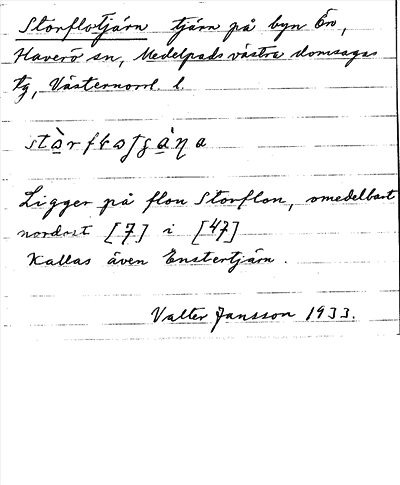 Storflotjärn tjärn på byn Ön,
Haverö sn, Medelpads västra domsagas
tg, Västernorrl. l.
Ligger på flon Storflon, omedelbart
nordost [7] i [47]
Kallas även Enstertjärn.
Valter Jansson 1933.